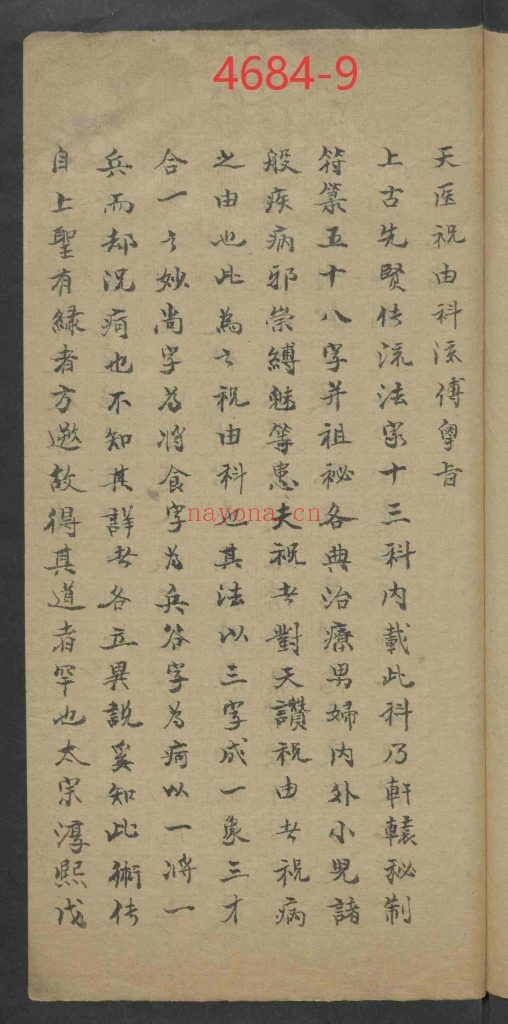 4684-9
天医祝由科流傳學旨
上古先賢传流法家十三科内載此科乃軒轅秘制
符篆五十八字并祖秘各典治療男婦内外小兒諸
般疾病邪祟縛魅等患夫祝者對天讚祝由者祝病
之由也此為之祝由科也其法以三字成一象三才
合一之妙尚字為将食字為兵谷字為疴以一将一
兵而却況疴也不知其詳者各立異說奚知此術传
自上聖有緣者方邀故得其道者罕也太宗淳熙戊
nayona.cn